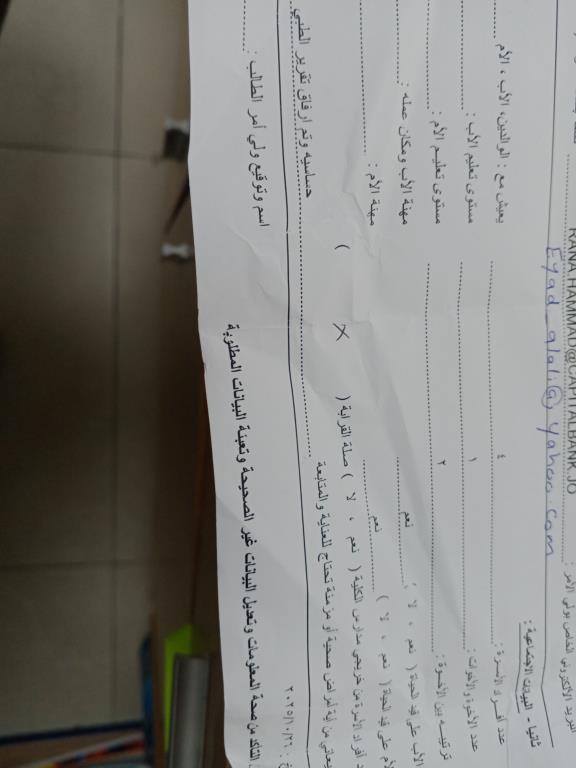 البريد الإلكتروني الخاص بولي الأمر :
RANA.HAMMAD@CAPITALBANK.JO
Eyad_alali@yahoo.com
ثانيا - البيانات الاجتماعية :
عدد أفراد الأسرة : ٤ يعيش مع : الوالدين، الأب ، الأم
عدد الأخوة والأخوات : ١ مستوى تعليم الأب :
ترتيبه بين الأخوة : ٢ مستوى تعليم الأم :
الأب على قيد الحياة ( نعم ، لا ) : نعم مهنة الأب ومكان عمله :
الأم على قيد الحياة ( نعم ، لا ) نعم مهنة الأم :
أفراد الأسرة من خريجي مدارس الكلية ( نعم ، لا ) صلة القرابة ( X )
يعاني من أية أمراض صحية أو مزمنة تحتاج للعناية والمتابعة
حساسيه وتم ارفاق تقرير الطبي
٢٠٢٥/١٠/٢٦
التأكد من صحة المعلومات وتعديل البيانات غير الصحيحة وتعبئة البيانات المطلوبة
اسم وتوقيع ولي أمر الطالب :